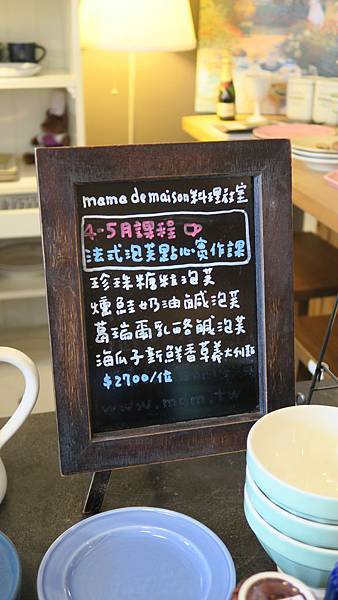 mama de maison料理教室
4-5月課程 中
法式泡芙點心實作課
珍珠糖粒泡芙
燻鮭奶油鹹泡芙
葛瑞爾乳酪鹹泡芙
海瓜子新鮮香草義大利麵
$2700/位
www.mdm.tw